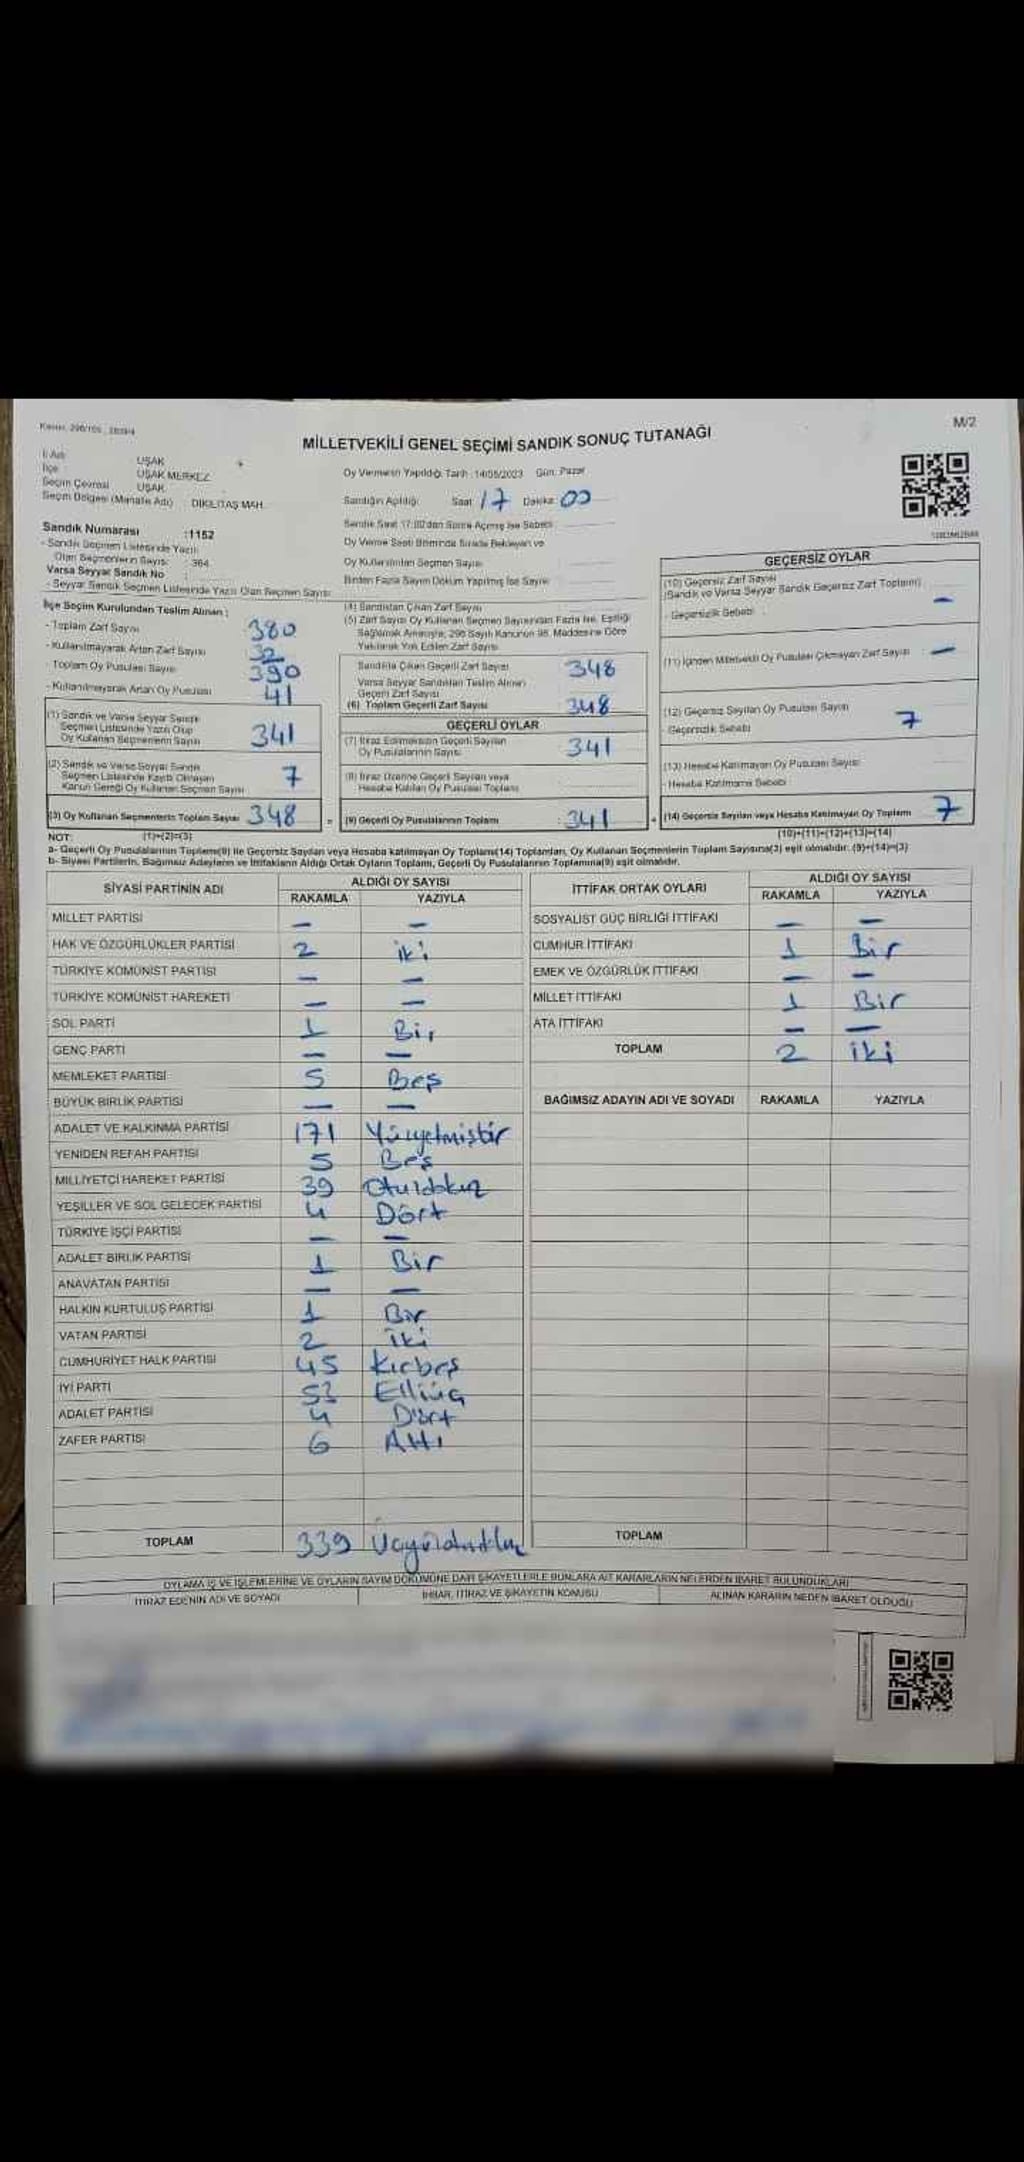 M/2
MİLLETVEKİLİ GENEL SEÇİMİ SANDIK SONUÇ TUTANAĞI
İl Adı UŞAK
İlçe UŞAK MERKEZ
Seçim Çevresi UŞAK
Seçim Bölgesi (Mahalle Adı) DİKİLİTAŞ MAH.
Sandık Numarası :1152
- Sandık Seçmen Listesinde Yazılı
Olan Seçmenlerin Sayısı : 364
Varsa Seyyar Sandık No
- Seyyar Sandık Seçmen Listesinde Yazılı Olan Seçmen Sayısı
Oy Vermenin Yapıldığı Tarih : 14/05/2023 Gün: Pazar
Sandığın Açıldığı Saat 17 Dakika: 00
Sandık Saat 17:00'dan Sonra Açılmış İse Sebebi
Oy Verme Saati Bitiminde Sırada Bekleyen ve
Oy Kullandırılan Seçmen Sayısı
Birden Fazla Sayım Döküm Yapılmış İse Sayısı
İlçe Seçim Kurulundan Teslim Alınan :
- Toplam Zarf Sayısı 380
- Kullanılmayarak Artan Zarf Sayısı 32
- Toplam Oy Pusulası Sayısı 390
- Kullanılmayarak Artan Oy Pusulası 41
(1) Sandık ve Varsa Seyyar Sandık
Seçmen Listesinde Yazılı Olup
Oy Kullanan Seçmenlerin Sayısı 341
(2) Sandık ve Varsa Seyyar Sandık
Seçmen Listesinde Kayıtlı Olmayan
Kanun Gereği Oy Kullanan Seçmen Sayısı 7
(3) Oy Kullanan Seçmenlerin Toplam Sayısı 348
(4) Sandıktan Çıkan Zarf Sayısı
(5) Zarf Sayısı Oy Kullanan Seçmen Sayısından Fazla İse, Eşitliği
Sağlamak Amacıyla, 298 Sayılı Kanunun 98. Maddesine Göre
Yakılarak Yok Edilen Zarf Sayısı
Sandıkta Çıkan Geçerli Zarf Sayısı 348
Varsa Seyyar Sandıktan Teslim Alınan
Geçerli Zarf Sayısı
(6) Toplam Geçerli Zarf Sayısı 348
GEÇERLİ OYLAR
(7) İtiraz Edilmeksizin Geçerli Sayılan
Oy Pusulalarının Sayısı 341
(8) İtiraz Üzerine Geçerli Sayılan veya
Hesaba Katılan Oy Pusulası Toplamı
(9) Geçerli Oy Pusulalarının Toplamı : 341
GEÇERSİZ OYLAR
(10) Geçersiz Zarf Sayısı
(Sandık ve Varsa Seyyar Sandık Geçersiz Zarf Toplamı) –
- Geçersizlik Sebebi :
(11) İçinden Milletvekili Oy Pusulası Çıkmayan Zarf Sayısı –
(12) Geçersiz Sayılan Oy Pusulası Sayısı 7
- Geçersizlik Sebebi
(13) Hesaba Katılmayan Oy Pusulası Sayısı
- Hesaba Katılmama Sebebi
(14) Geçersiz Sayılan veya Hesaba Katılmayan Oy Toplamı 7
NOT: (1)+(2)=(3) (10)+(11)+(12)+(13)=(14)
a- Geçerli Oy Pusulalarının Toplamı(9) ile Geçersiz Sayılan veya Hesaba katılmayan Oy Toplamı(14) Toplamları, Oy Kullanan Seçmenlerin Toplam Sayısına(3) eşit olmalıdır. (9)+(14)=(3)
b- Siyasi Partilerin, Bağımsız Adayların ve İttifakların Aldığı Ortak Oyların Toplamı, Geçerli Oy Pusulalarının Toplamına(9) eşit olmalıdır.
SİYASİ PARTİNİN ADI ALDIĞI OY SAYISI
RAKAMLA YAZIYLA
MİLLET PARTİSİ – –
HAK VE ÖZGÜRLÜKLER PARTİSİ 2 iki
TÜRKİYE KOMÜNİST PARTİSİ – –
TÜRKİYE KOMÜNİST HAREKETİ – –
SOL PARTİ 1 Bir
GENÇ PARTİ – –
MEMLEKET PARTİSİ 5 Beş
BÜYÜK BİRLİK PARTİSİ – –
ADALET VE KALKINMA PARTİSİ 171 Yüzyetmişbir
YENİDEN REFAH PARTİSİ 5 Beş
MİLLİYETÇİ HAREKET PARTİSİ 39 Otuzdokuz
YEŞİLLER VE SOL GELECEK PARTİSİ 4 Dört
TÜRKİYE İŞÇİ PARTİSİ – –
ADALET BİRLİK PARTİSİ 1 Bir
ANAVATAN PARTİSİ – –
HALKIN KURTULUŞ PARTİSİ 1 Bir
VATAN PARTİSİ 2 iki
CUMHURİYET HALK PARTİSİ 45 Kırkbeş
İYİ PARTİ 53 Elliüç
ADALET PARTİSİ 4 Dört
ZAFER PARTİSİ 6 Altı
TOPLAM 339 Üçyüzotuzdokuz
İTTİFAK ORTAK OYLARI ALDIĞI OY SAYISI
RAKAMLA YAZIYLA
SOSYALİST GÜÇ BİRLİĞİ İTTİFAKI – –
CUMHUR İTTİFAKI 1 Bir
EMEK VE ÖZGÜRLÜK İTTİFAKI – –
MİLLET İTTİFAKI 1 Bir
ATA İTTİFAKI – –
TOPLAM 2 iki
BAĞIMSIZ ADAYIN ADI VE SOYADI RAKAMLA YAZIYLA
TOPLAM
OYLAMA İŞ VE İŞLEMLERİNE VE OYLARIN SAYIM DÖKÜMÜNE DAİR ŞİKAYETLERLE BUNLARA AİT KARARLARIN NELERDEN İBARET BULUNDUKLARI
İTİRAZ EDENİN ADI VE SOYADI İHBAR, İTİRAZ VE ŞİKAYETİN KONUSU ALINAN KARARIN NEDEN İBARET OLDUĞU